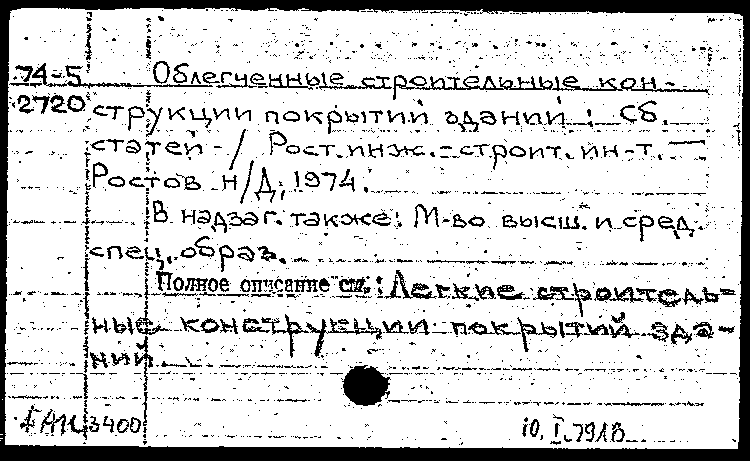 74-5 Облегченные строительные кон-
2720 струкции покрытий зданий : Сб.
статей - / Рост. инж.-строит. ин-т. —
Ростов н/Д, 1974.
В надзаг. также: М-во высш. и сред.
спец. образ.
Полное описание см.: Легкие строитель-
ные конструкции покрытий зда-
ний.
3400 10.I.79